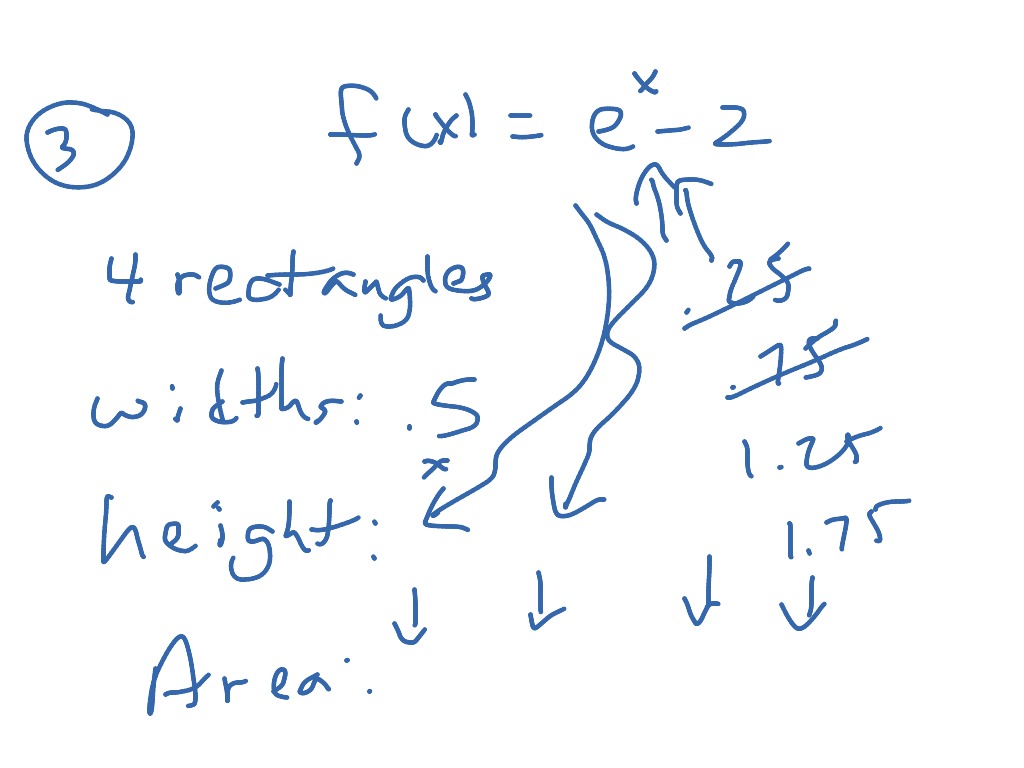 ③ f(x) = eˣ - 2
4 rectangles
.25
.75
widths: .5
x
1.25
height:
1.75
Area: